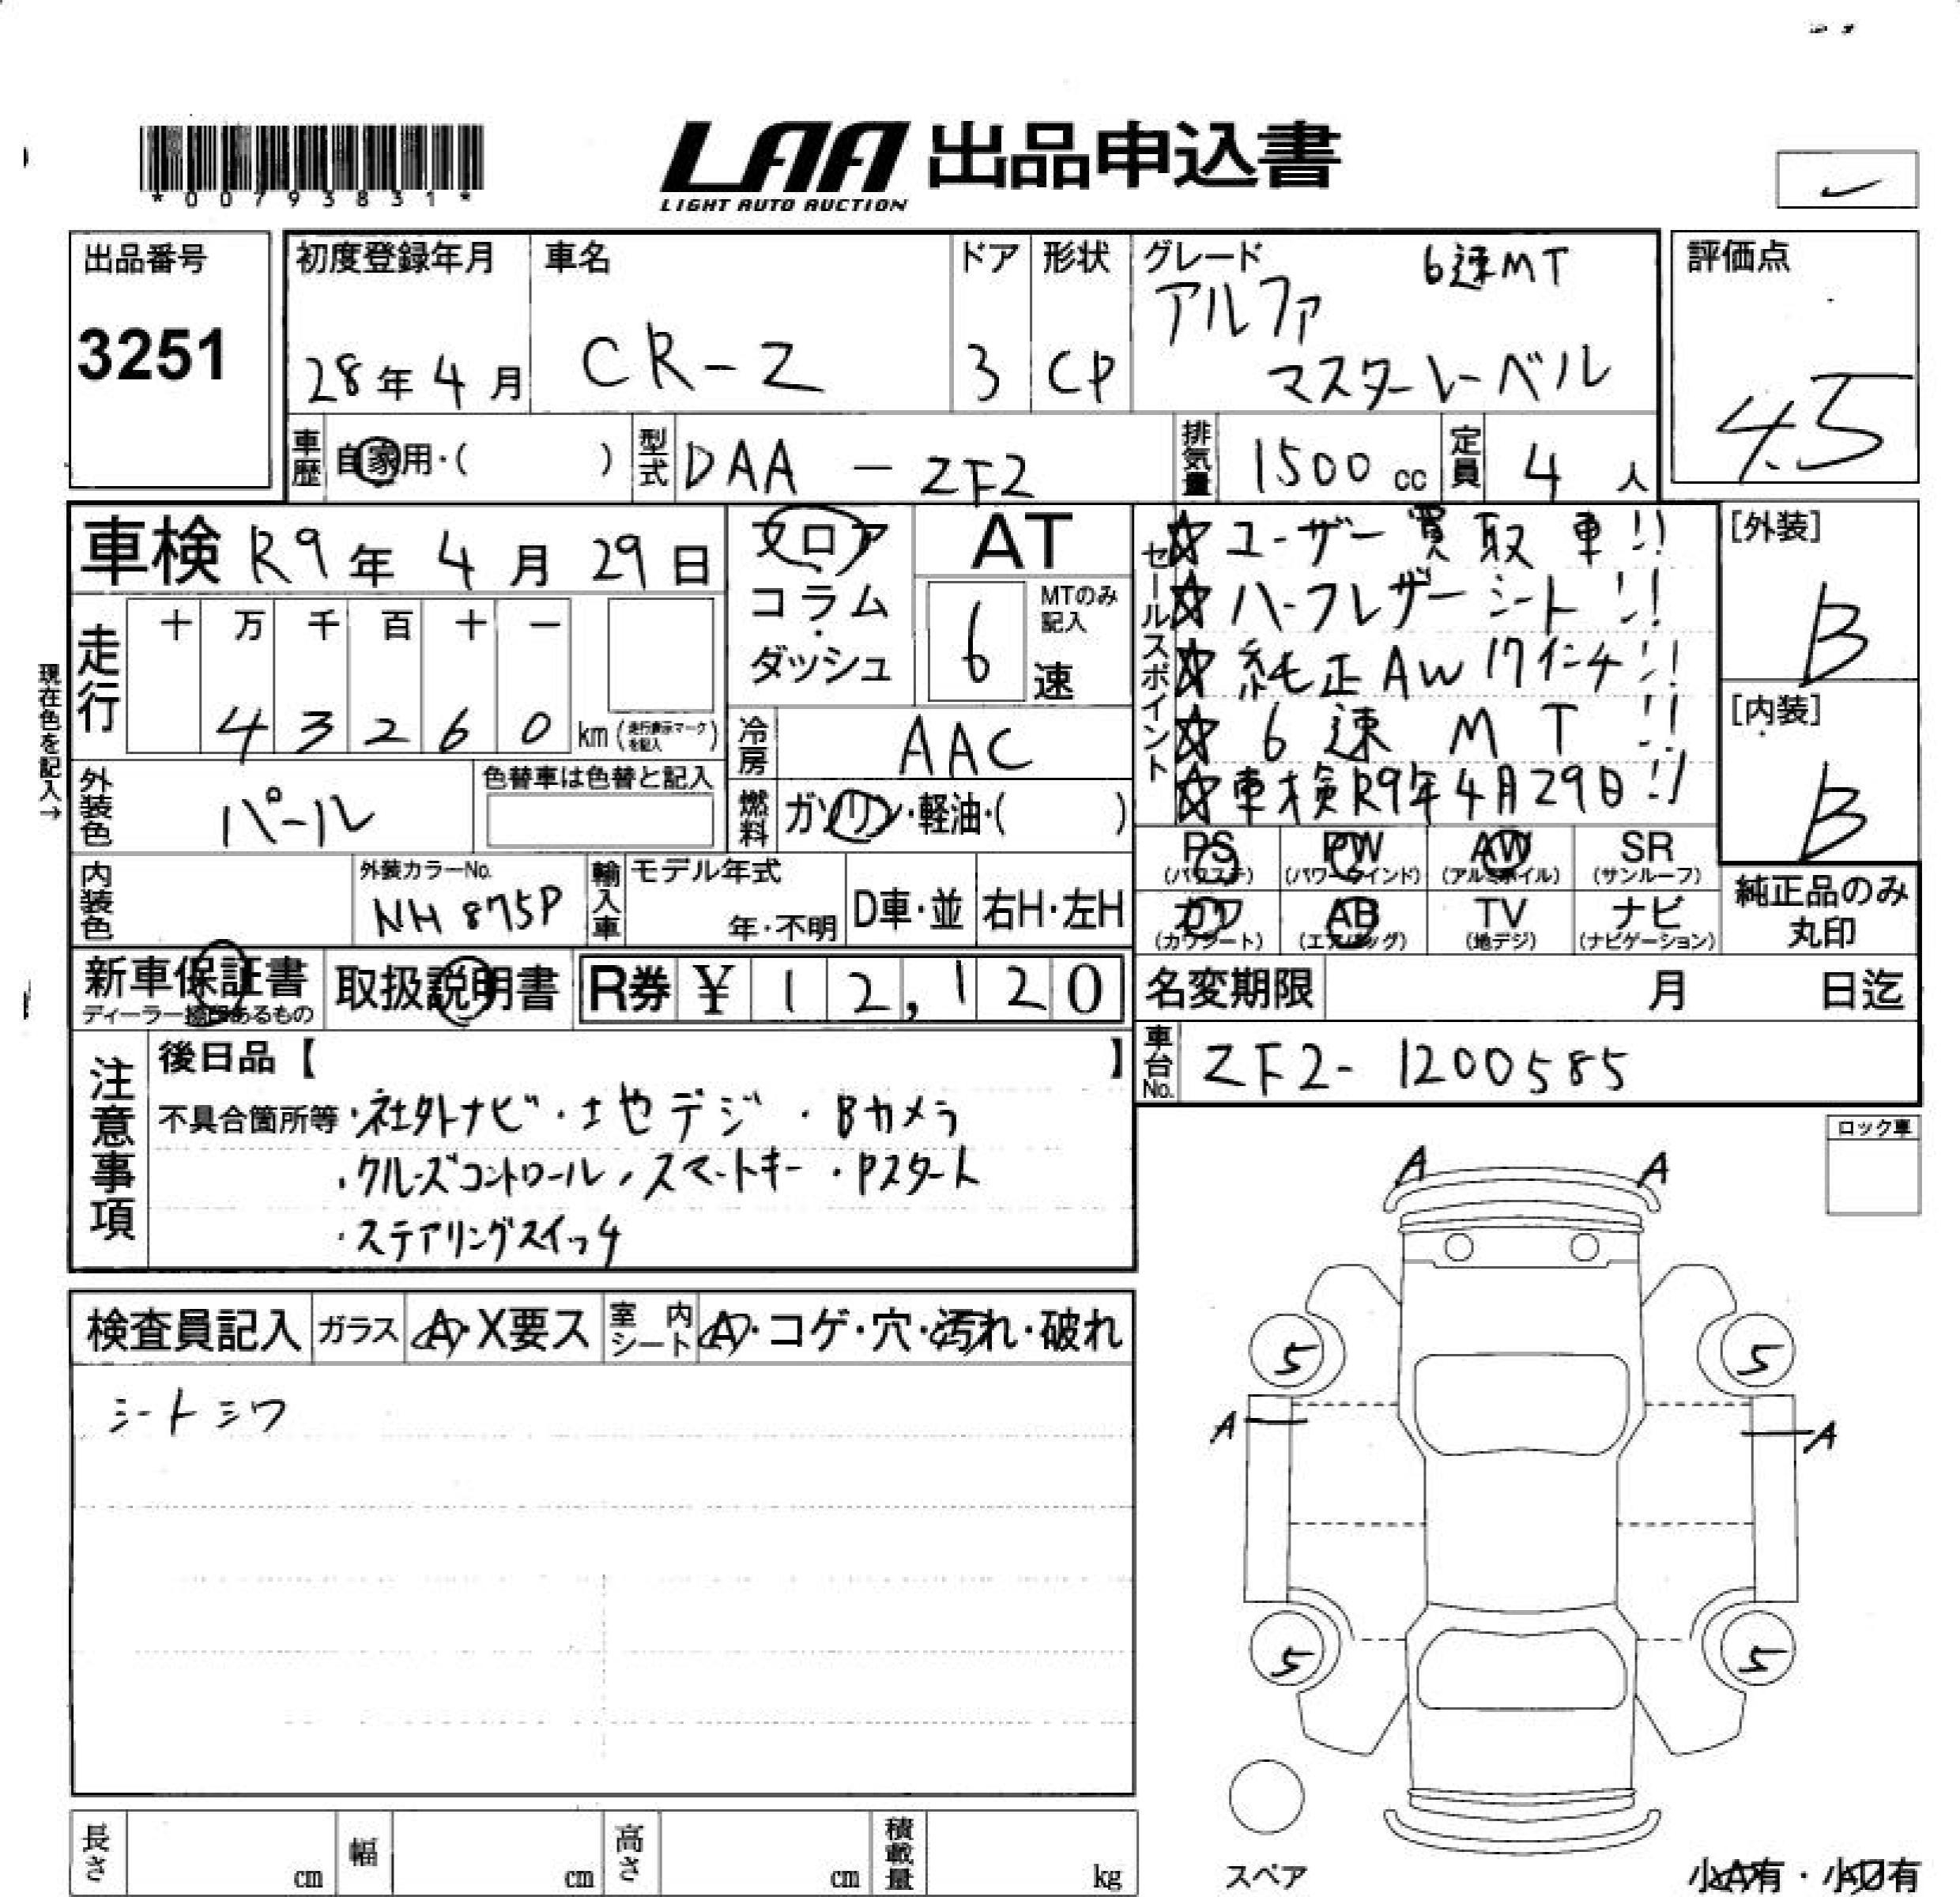 *00793831*
LAA 出品申込書
LIGHT AUTO AUCTION
出品番号
3251
初度登録年月
28年4月
車名
CR-Z
ドア
3
形状
CP
グレード
6速MT
アルファ
マスターレーベル
評価点
4.5
車歴
自家用・( )
型式
DAA - ZF2
排気量
1500 cc
定員
4人
車検 R9年4月29日
フロア・コラム・ダッシュ
AT
6速
MTのみ記入
セールスポイント
☆ユーザー買取車!!
☆ハーフレザーシート!!
☆純正AW17インチ!!
☆6速MT!!
☆車検R9年4月29日!!
[外装]
B
[内装]
B
現在色を記入→
走行
十 万 千 百 十 一
4 3 2 6 0 km (走行表示マークを記入)
冷房
AAC
外装色
パール
色替車は色替と記入
燃料
ガソリン・軽油・( )
PS (パワステ)
PW (パワーウインド)
AW (アルミホイル)
SR (サンルーフ)
カワ (カワシート)
AB (エアバッグ)
TV (地デジ)
ナビ (ナビゲーション)
純正品のみ丸印
内装色
外装カラーNo.
NH 875P
輸入車
モデル年式
年・不明
D車・並
右H・左H
新車保証書
取扱説明書
R券 ¥ 12,120
名変期限 月 日迄
車台No.
ZF2- 1200585
注意事項
後日品【 】
不具合箇所等 ・社外ナビ・地デジ・Bカメラ
・クルーズコントロール・スマートキー・Pスタート
・ステアリングスイッチ
ロック車
A A
検査員記入
ガラス
A・X要ス
室内シート
A・コゲ・穴・汚れ・破れ
シートシワ
5 5
A A
5 5
スペア
小A有・小U有
長さ cm
幅 cm
高さ cm
積載量 kg